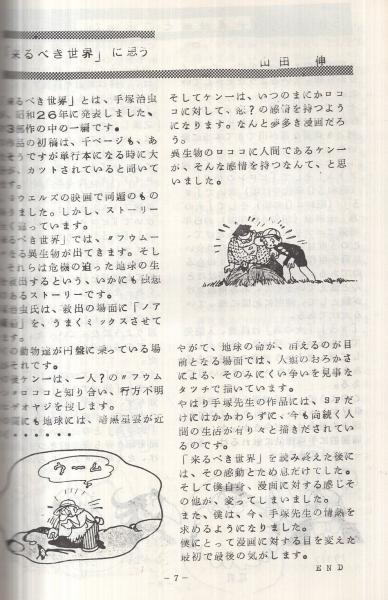 「来るべき世界」に思う
山田 伸
来るべき世界」とは、手塚治虫
、昭和26年に発表しました、
3部作の中の一編です。
作品の初稿は、千ページも、あ
そうですが単行本になる時に大
が、カットされていると聞いて
ます。
ウエルズの映画で同題のもの
ありました。しかし、ストーリー
く違っています。
るべき世界」では、〃フウムー
なる異生物が出てきます。そし
それらは危機の迫った地球の生
救出するという、いかにも独想
のあるストーリーです。
治虫氏は、救出の場面に「ノア
」を、うまくミックスさせて
ます。
の動物達が円盤に乗っている場
がそれです。
後ケンーは、一人?の〃フウム
〃ロココと知り合い、行方不明
オヤジを捜します。
間にも地球には、暗黒星雲が近
・・・・・・・
ウーム
そしてケンーは、いつのまにかロココ
コに対して、恋?の感情を持つよう
になります。なんと夢多き漫画だろ
う。
異生物のロココに人間であるケンー
が、そんな感情を持つなんて、と思
いました。
やがて、地球の命が、消えるのが目
前となる場面では、人類のおろかさ
による、そのみにくい争いを見事な
タッチで描いています。
やはり手塚先生の作品には、SFだ
けにはかかわらずに、今も尚続く人
間の生活が有り々と描きだされてい
るのです。
「来るべき世界」を読み終えた後に
は、その感動とため息だけでした。
そして僕自身、漫画に対する感じそ
の他が、変ってしまいました。
また、僕は、今、手塚先生の情熱を
求めるようになりました。
僕にとって漫画に対する目を変えた
最初で最後の気がします。
END
-7-